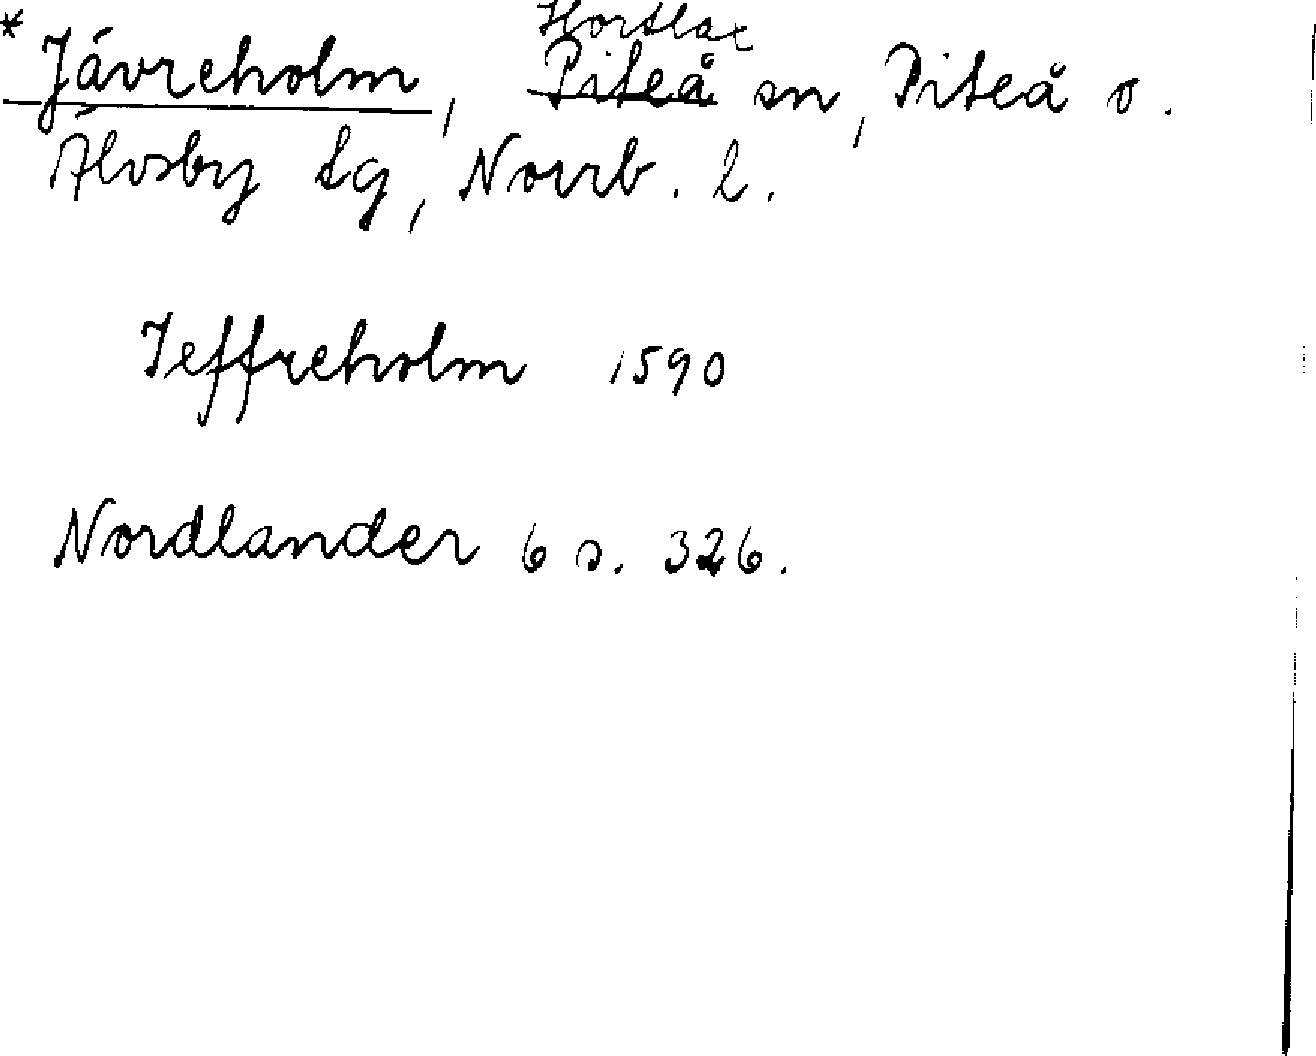 Hortlax
* Jävreholm, Piteå sn, Piteå o.
Älvsby tg, Norrb. l.
Jeffreholm 1590
Nordlander 6 s. 326.